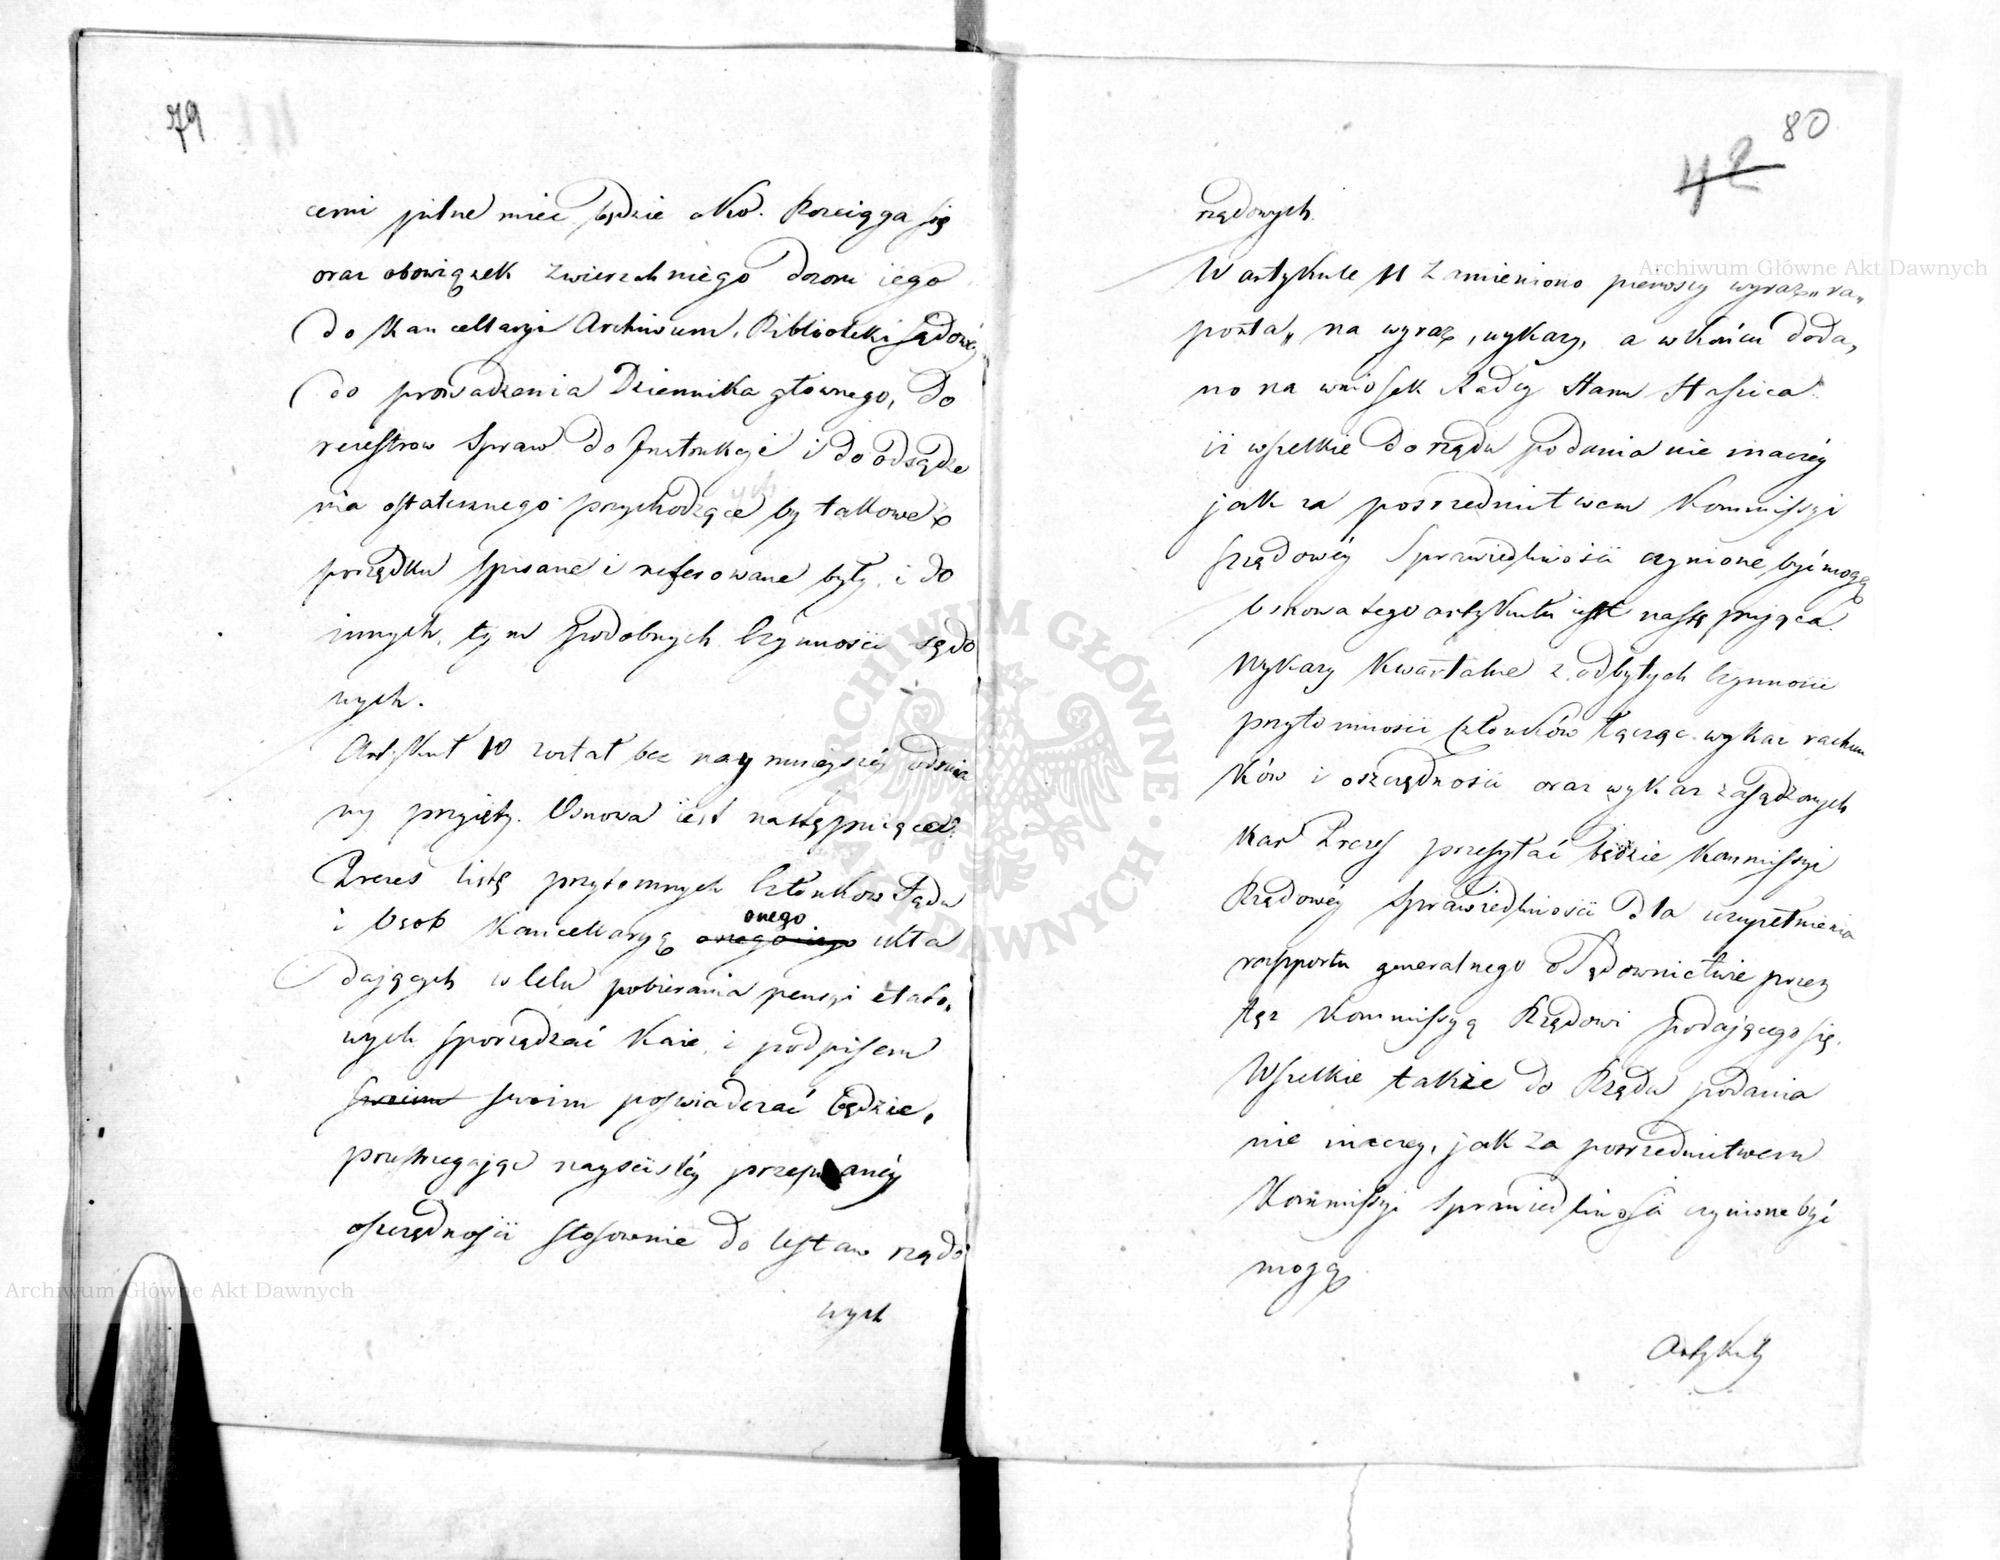 79
cemi pilne mieć będzie oko. Rozciąga się
oraz obowiązek zwierzchniego dozoru iego
do Kancellaryi Archiwum, Biblioteki sądowéy
do prowadzenia Dziennika głównego, do
reiestrow spraw do Instrukcyi i do odsądze
nia ostatecznego przychodzące by takowe w
porządku spisane i referowane były, i do
innych tym podobnych czynności sądo
wych.
Artykuł 10 został bez naymnieyszéy odmia
ny przyięty. Osnowa iest następuiąca:
Prezes listę przytomnych Członkow Sądu
i Osob Kancellaryą onego ukła
daiących w celu pobierania pensyi etato„
wych sporządzać każe i podpisem
swoim swoim poświadczać będzie,
przestrzegaiąc nayściśléy przepisanéy
oszczędności stosownie do Ustaw rządo
wych
80
42
rządowych.
W artykule 11 zmieniono pierwszy wyraz „ra„
porta„ na wyraz, wykazy, a w końcu doda„
no na wniosek Radcy Stanu Staszica.
iż wszelkie do rządu podania nie inaczéy
jak za posrzednictwem Kommissyi
rządowéy Sprawiedliwości czynione być mogą
Osnowa tego artykułu iest następująca.
Wykazy kwartalne z odbytych czynności
przytomności członków łącząc wykaz rachun
ków i oszczędności oraz wykaz zasądzonych
kar Prezes przesyłać będzie Kommissyi
Rządowéy Sprawiedliwości dla uzupełnienia
rapportu generalnego o Sądownictwie przez
tęż Kommissyą Rządowi podającego się.
Wszelkie także do Rządu podania
nie inaczey, jak za posrzednictwem
Kommissyi Sprawiedliwości czynione być
mogą
Artykuły
Archiwum Główne Akt Dawnych
Archiwum Główne Akt Dawnych
ARCHIWUM GŁÓWNE AKT DAWNYCH